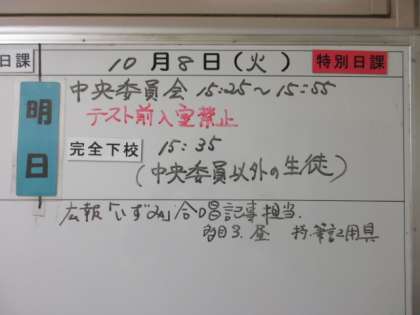 日課
10月8日(火)
特別日課
明日
中央委員会 15:25~15:55
テスト前入室禁止
完全下校 15:35
(中央委員以外の生徒)
広報「いずみ」合唱記事担当.
3. 昼 持.筆記用具